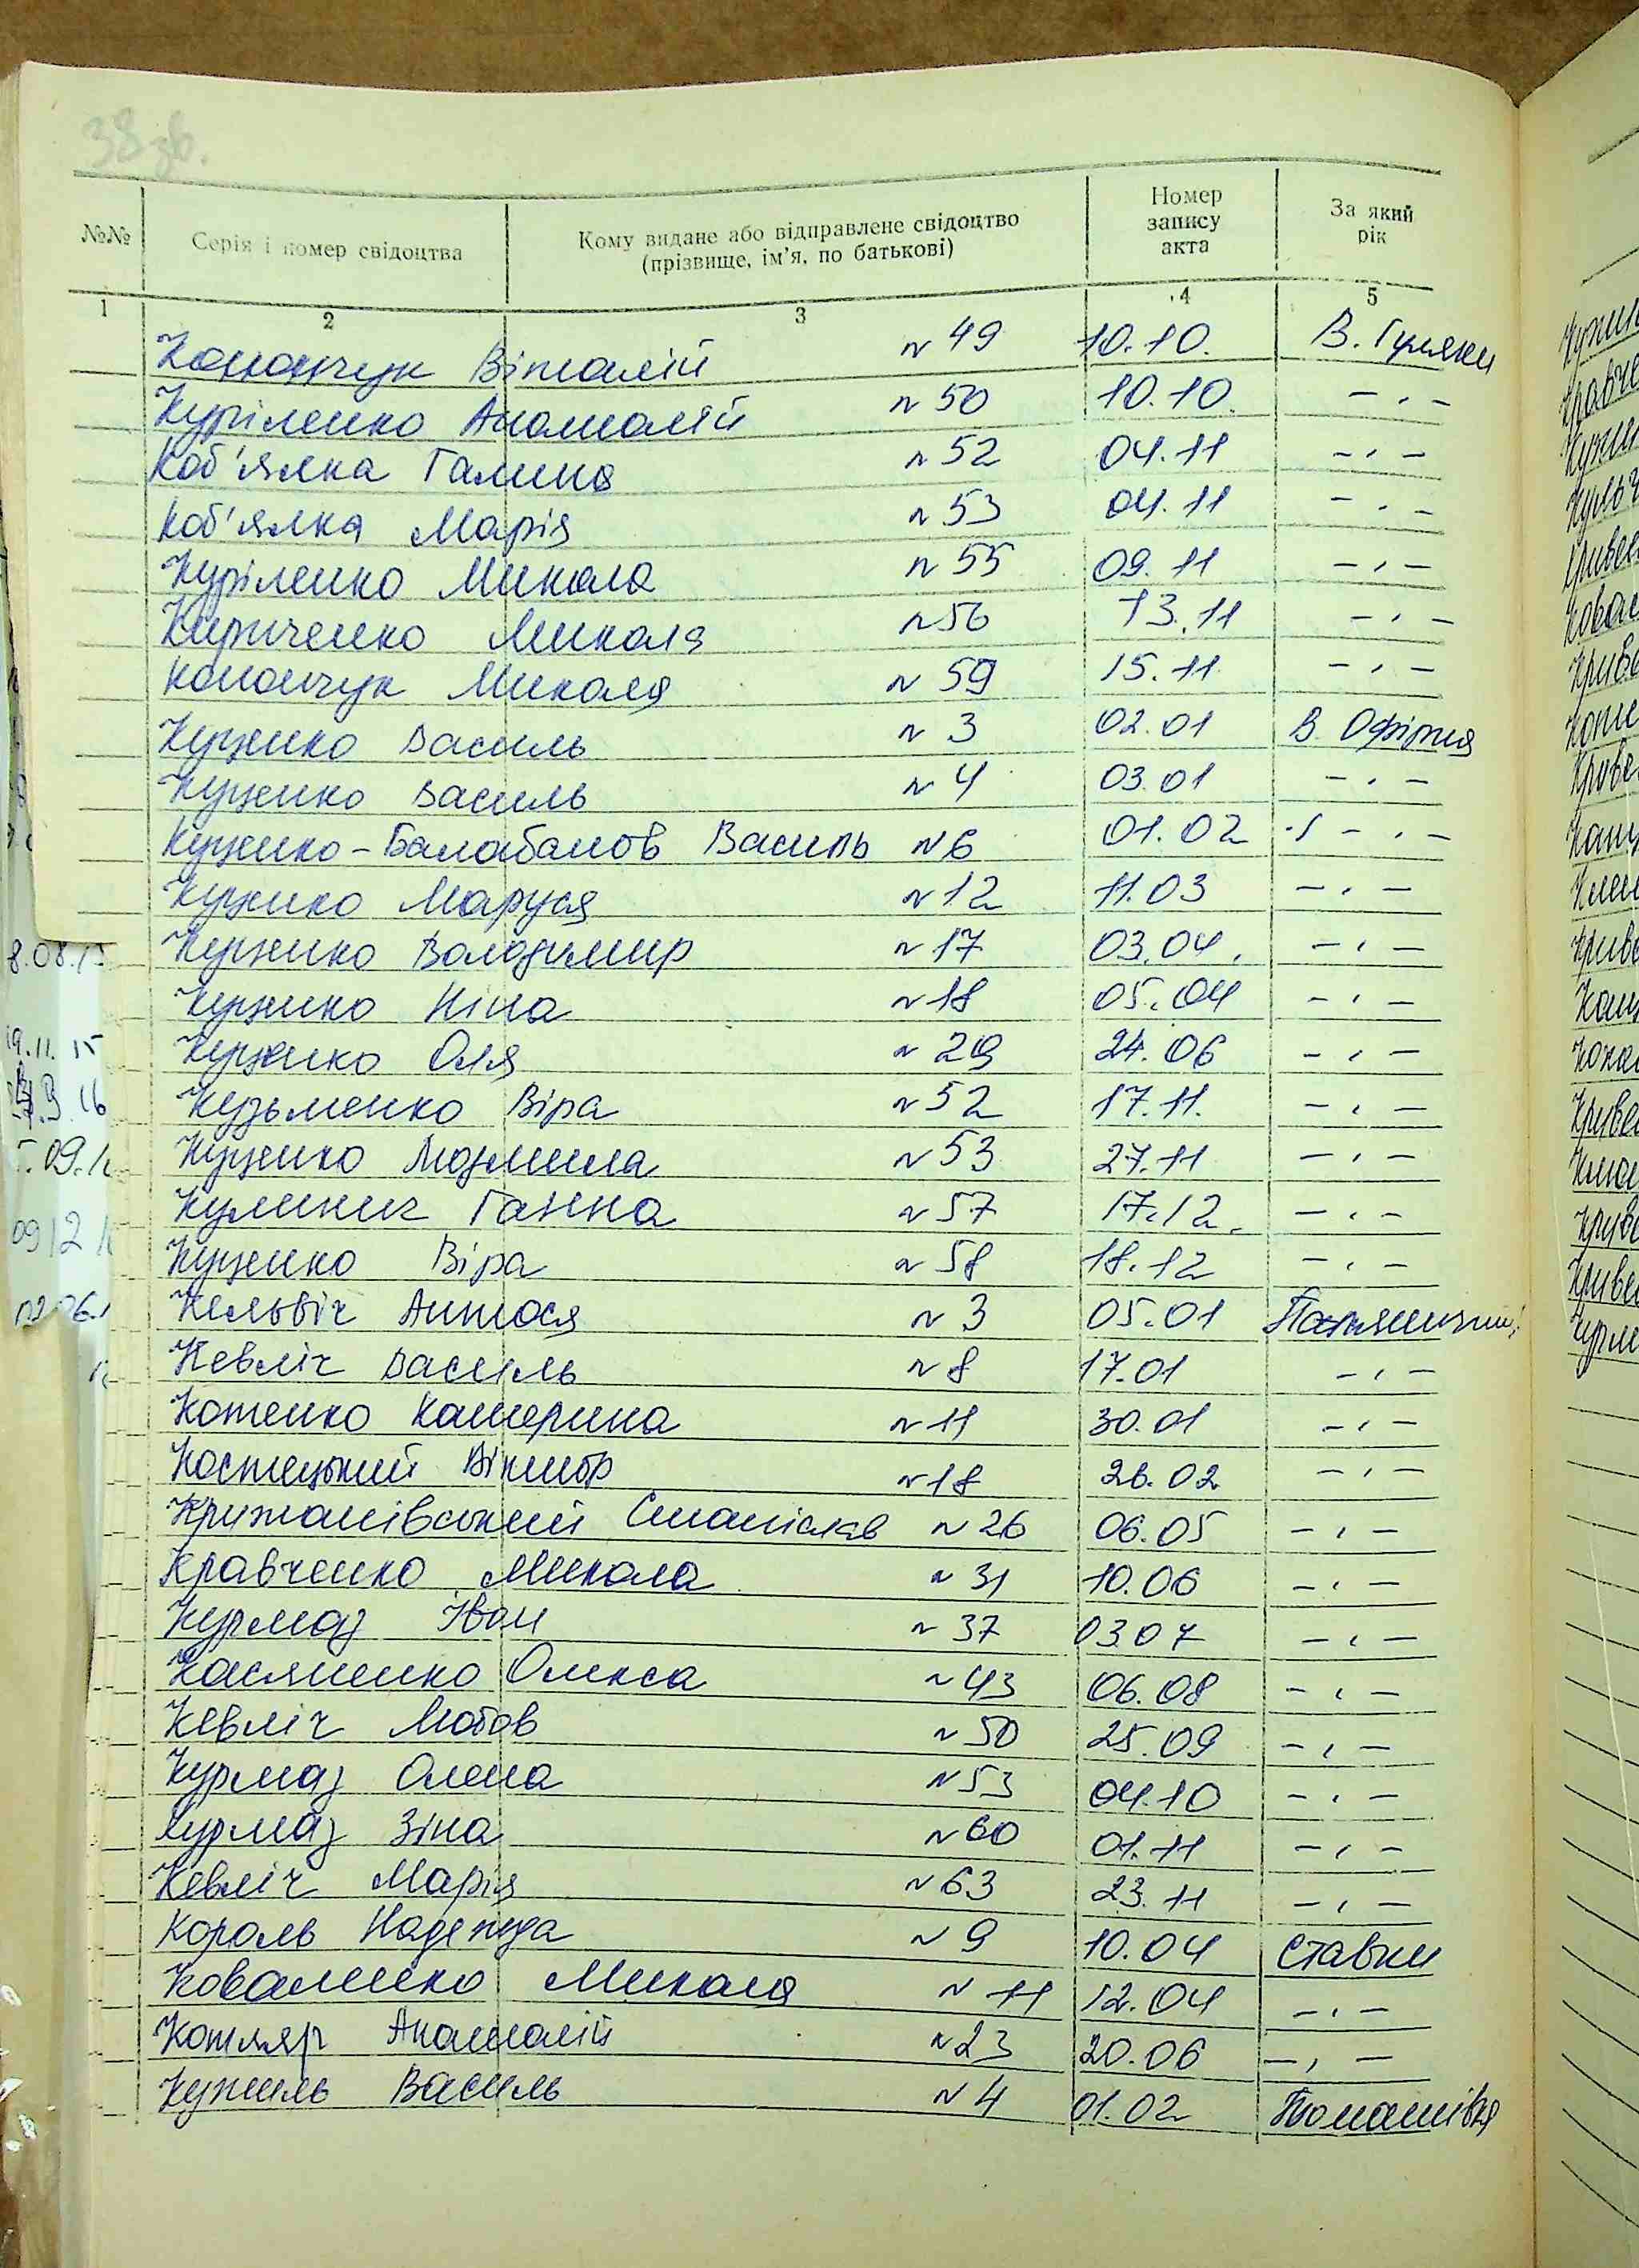 38 зв.
№№ Серія і номер свідоцтва Кому видане або відправлене свідоцтво (прізвище, ім'я, по батькові) Номер запису акта За який рік
1 2 3 4 5
Конончук Віталій №49 10.10. В. Гуляки
Куріленко Анатолій №50 10.10. -"-
Коб'ялка Галина №52 04.11 -"-
Коб'ялка Марія №53 04.11 -"-
Куріленко Микола №55 09.11 -"-
Кириченко Микола №56 13.11 -"-
Конончук Микола №59 15.11 -"-
Куценко Василь №3 02.01 В Офірна
Куценко Василь №4 03.01 -"-
Куценко-Балабанов Василь №6 01.02 -"-
Куценко Маруся №12 11.03 -"-
Куценко Володимир №17 03.04. -"-
Куценко Ніна №18 05.04 -"-
Куценко Оля №29 24.06 -"-
Кузьменко Віра №52 17.11. -"-
Куценко Людмила №53 27.11 -"-
Кулинич Ганна №57 17.12. -"-
Куценко Віра №58 18.12 -"-
Кельвіч Антося №3 05.01
Кевліч Василь №8 17.01 -"-
Котенко Катерина №11 30.01 -"-
Костецький Віктор №18 26.02 -"-
Крижанівський Станіслав №26 06.05 -"-
Кравченко Микола №31 10.06 -"-
Курмаз Іван №37 03.07 -"-
Касяненко Олекса №43 06.08 -"-
Кевліч Любов №50 25.09 -"-
Курмаз Олена №53 04.10 -"-
Курмаз Зіна №60 01.11 -"-
Кевліч Марія №63 23.11 -"-
Король Надежда №9 10.04 Ставки
Коваленко Микола №11 12.04 -"-
Котляр Анатолій №23 20.06 -"-
Кужиль Василь №4 01.02 Томашівка